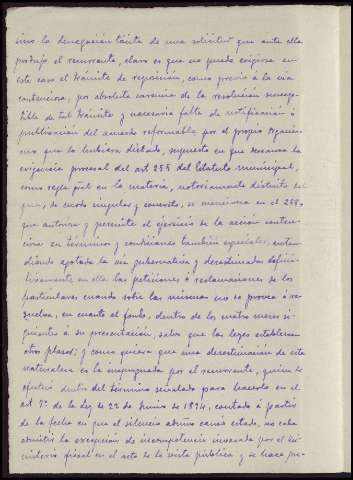 sino la denegación tácita de una solicitud que ante ella
produjo el recurrente, claro es que no puede exigirse en
este caso el trámite de reposición, como previo a la vía
contenciosa, por absoluta carencia de la resolución suscep-
tible de tal trámite y necesaria falta de notificación o
publicación del acuerdo reformable por el propio Organis-
mo que lo hubiera dictado, supuesto en que descansa la
exigencia procesal del art 255 del Estatuto municipal,
como regla gral en la materia, notoriamente distinto del
que, de modo singular y concreto, se menciona en el 268,
que autoriza y permite el ejercicio de la acción conten-
ciosa en términos y condiciones también especiales, enten-
diendo agotada la vía gubernativa y desestimadas defini-
tivamente en ella las peticiones o reclamaciones de los
particulares cuando sobre las mismas no se provea o re-
suelva, en cuanto al fondo, dentro de los cuatro meses si-
guientes a su presentación, salvo que las leyes establezcan
otros plazos; y como quiera que una desestimación de esta
naturaleza es la impugnada por el recurrente, quien lo
efectuó dentro del término señalado para hacerlo en el
art 7º de la Ley de 22 de Junio de 1894, contado a partir
de la fecha en que el silencio aludido causó estado, no cabe
admitir la excepción de incompetencia invocada por el Mi-
nisterio fiscal en el acto de la vista pública y se hace pre-